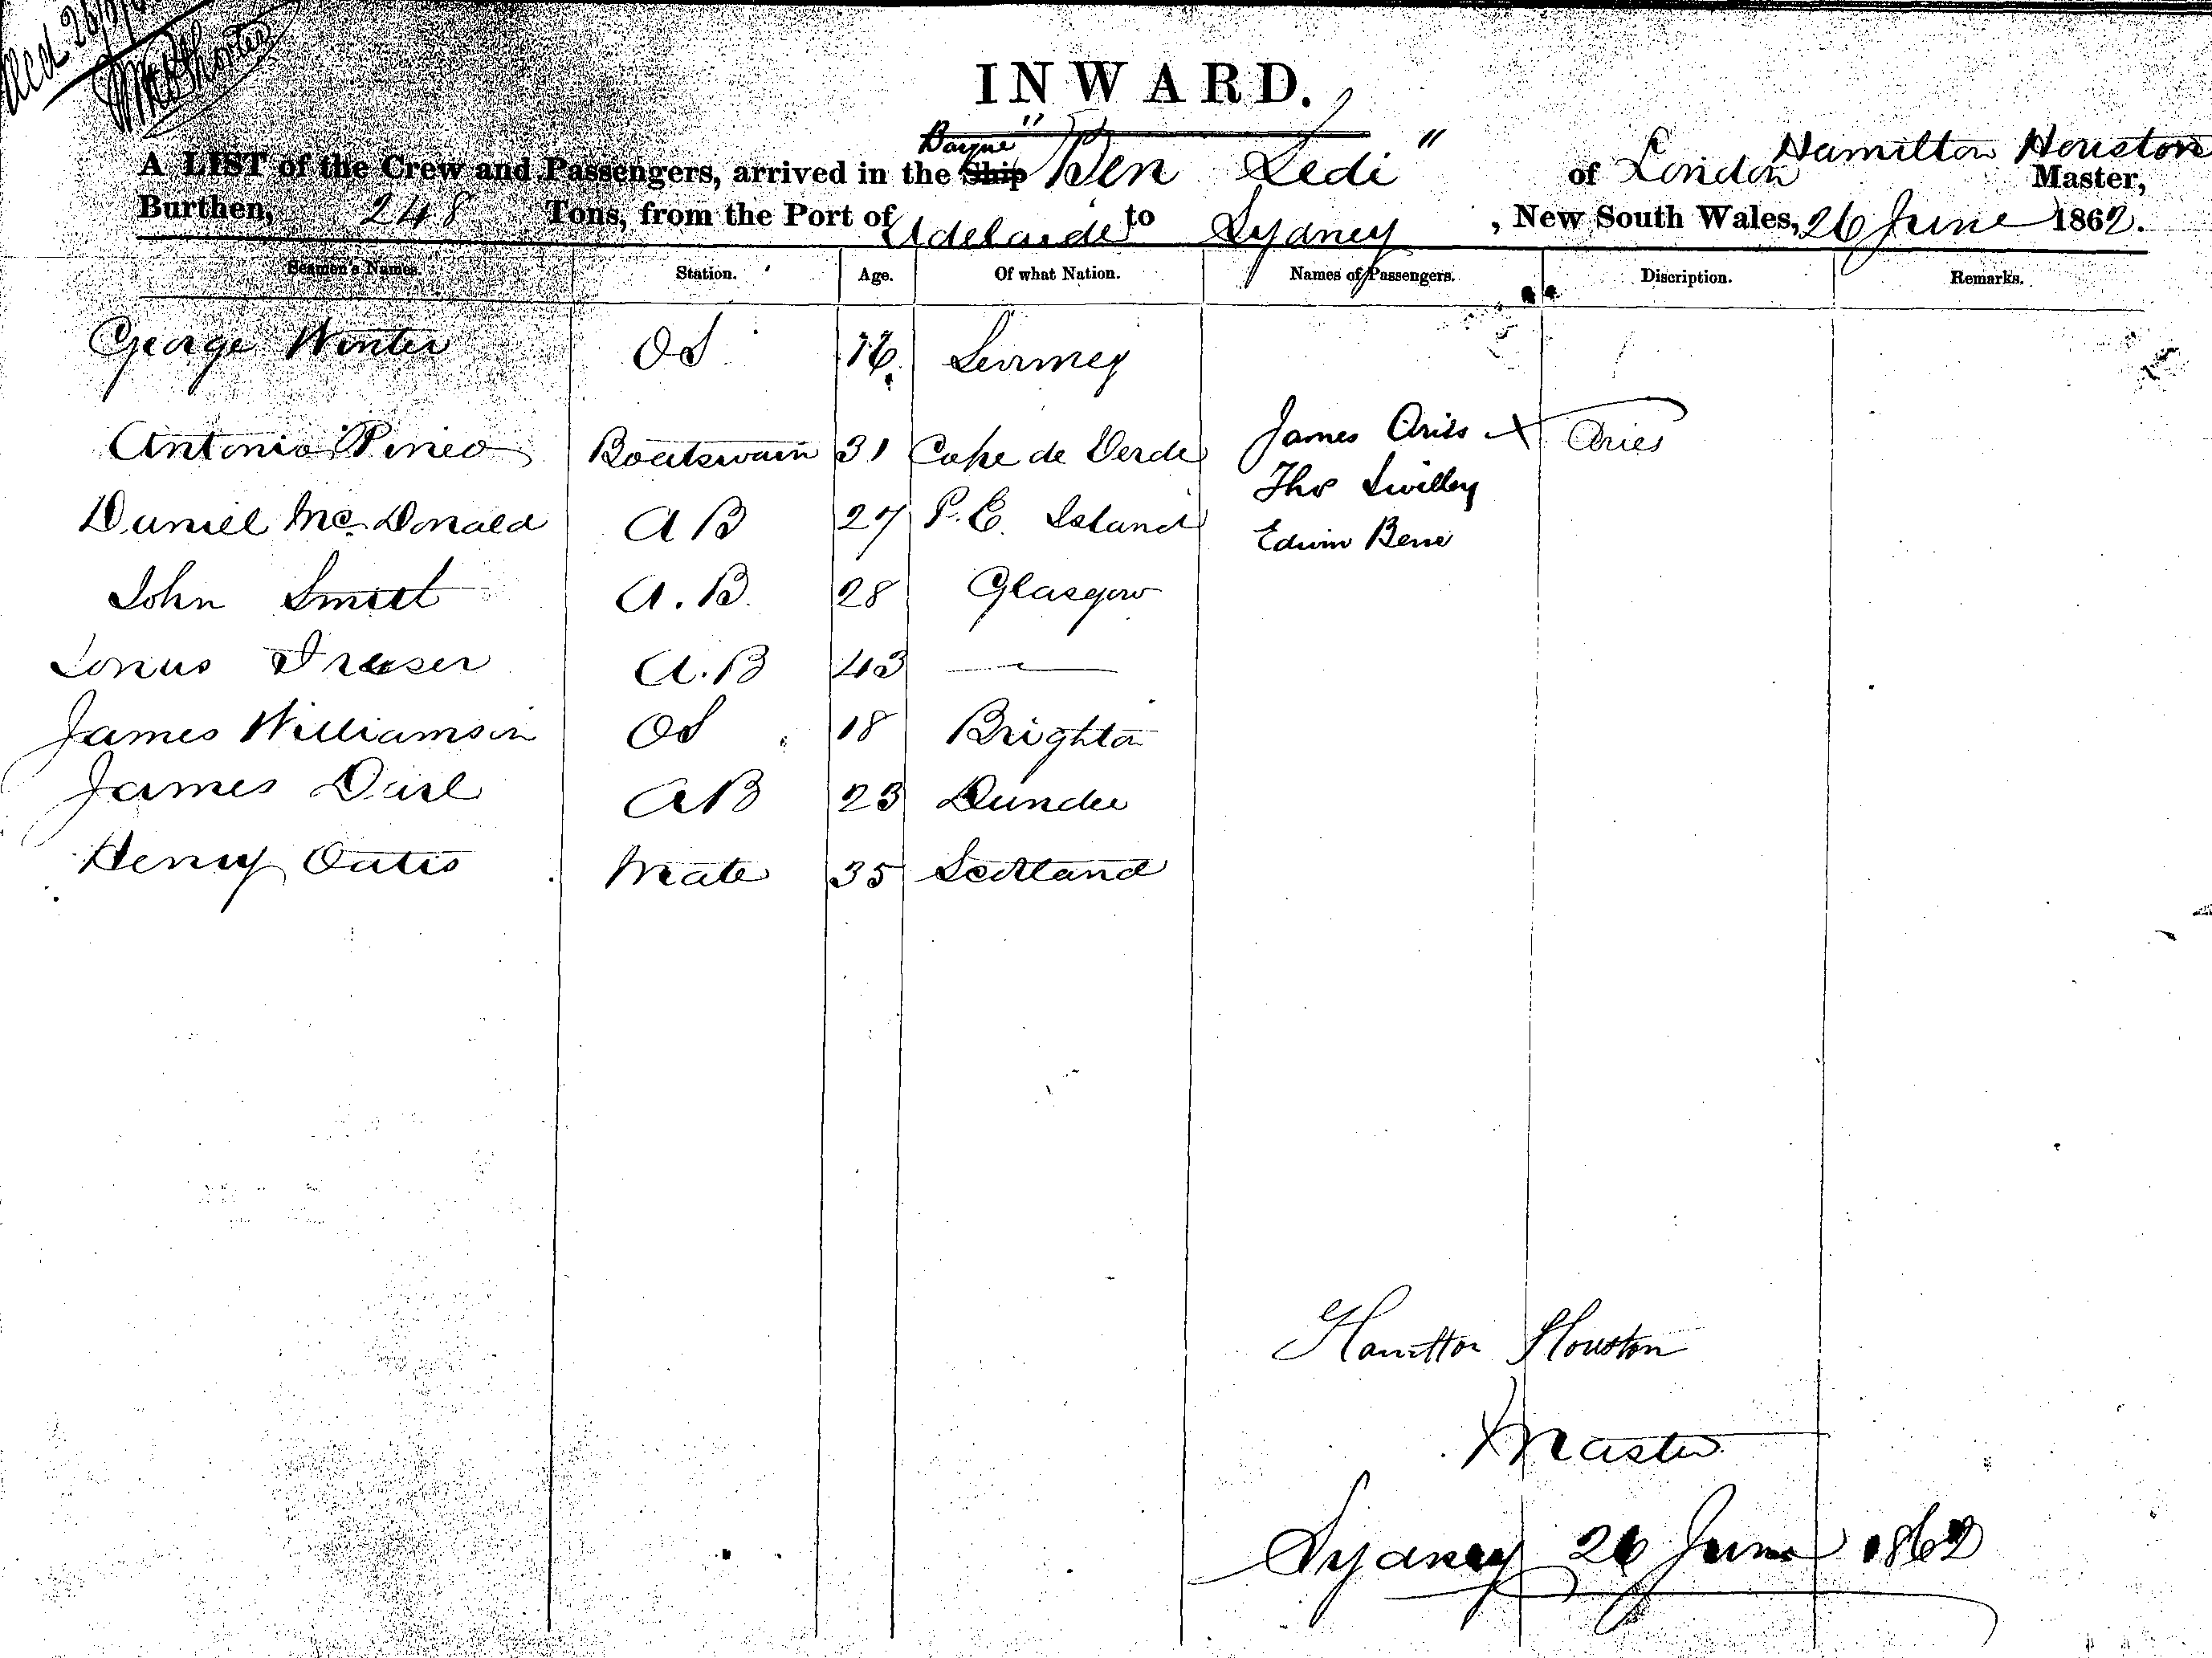 Recd 26/
INWARD.
Barque
A LIST of the Crew and Passengers, arrived in the Ship "Ben Ledi" of London Hamilton Houston Master,
Burthen, 248 Tons, from the Port of Adelaide to Sydney, New South Wales, 26 June 1862.
Seamen's Names. Station. Age. Of what Nation. Names of Passengers. Discription. Remarks.
George Winter OS 16
Antonio Boatswain 31 Cape de Verde James Aries x Aries
Daniel McDonald AB 27 P.E. Island Thos Swilley
Edwin
John Smith A.B. 28 Glasgow
Fraser A.B 43 —
James Williamson OS 18 Brighton
James AB 23 Dundee
Henry Oates Mate 35 Scotland
Hamilton Houston
Master
Sydney 26 June 1862